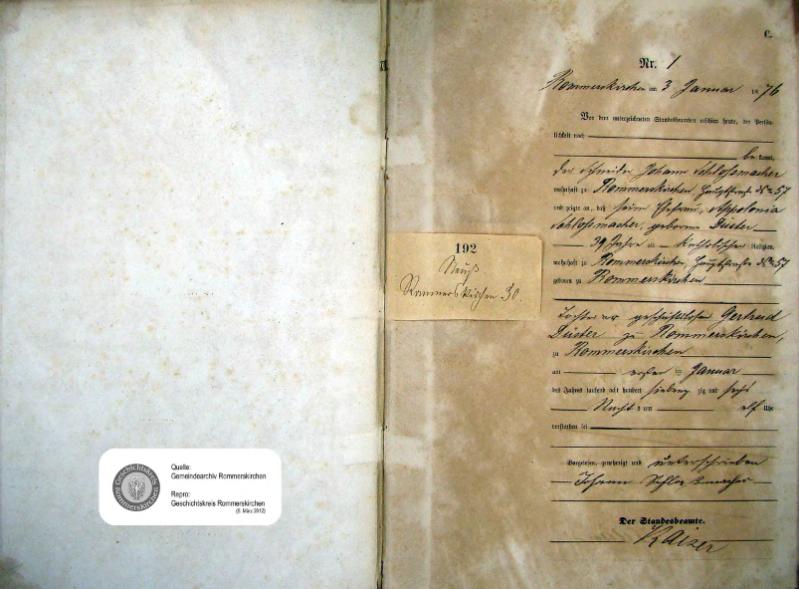 Quelle:
Gemeindearchiv Rommerskirchen
Repro:
Geschichtskreis Rommerskirchen
(5. März 2012)
Geschichtskreis Rommerskirchen
192
Neuß
Rommerskirchen 30.
C.
Nr. 1
Rommerskirchen am 3 Januar 1876
Vor dem unterzeichneten Standesbeamten erschien heute, der Persön-
lichkeit nach
bekannt,
der Schneider Johann Schlossmacher
wohnhaft zu Rommerskirchen, Hauptstraße No 57
und zeigte an, daß seine Ehefrau, Appolonia
Schlossmacher, geborene Düster
39 Jahre alt katholischer Religion,
wohnhaft zu Rommerskirchen, Hauptstraße No 57
geboren zu Rommerskirchen
Tochter der Gertrud
Düster zu Rommerskirchen,
zu Rommerskirchen
am ersten Januar
des Jahres tausend acht hundert siebenzig und sechs
Nachts um elf Uhr
verstorben sei
Vorgelesen, genehmigt und unterschrieben
Johann Schlossmacher
Der Standesbeamte.
Kaiser